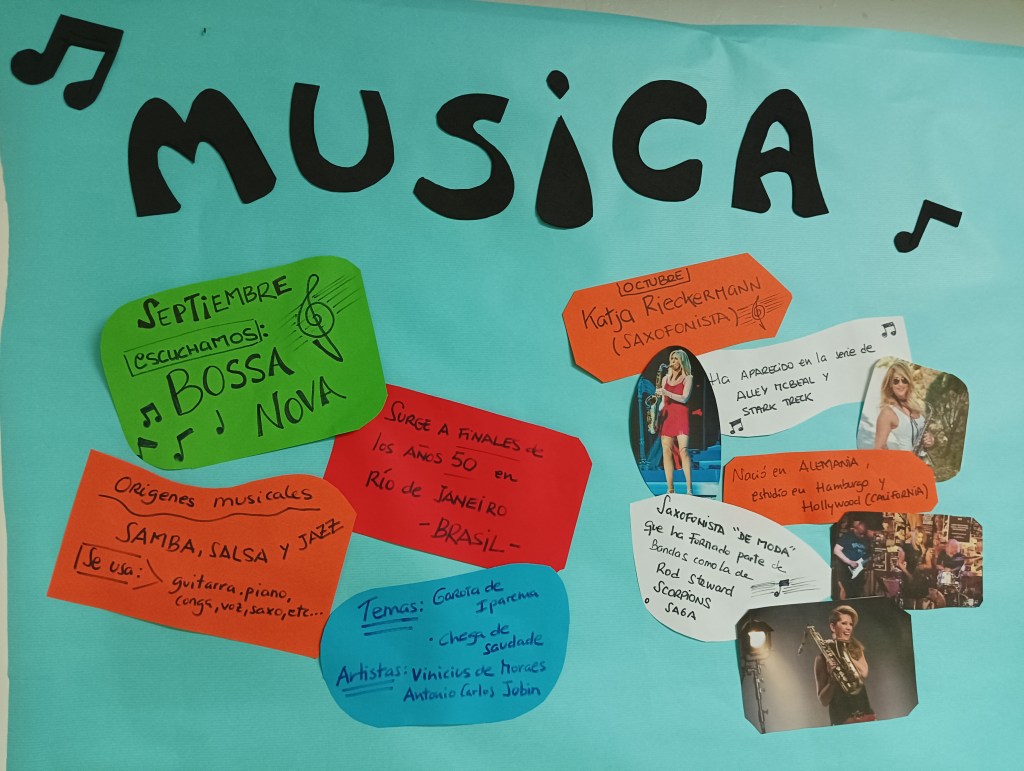 MUSiCA
SEPTiEMBRE
escuchamos:
BOSSA
NOVA
SURGE A FINALES de
los AÑOS 50 en
RÍO DE JANEIRO
- BRASIL -
ORÍGENES musicales
SAMBA, SALSA Y JAZZ
Se usa:
guitarra, piano,
conga, voz, saxo, etc...
Temas: Garota de
Ipanema
• Chega de
saudade
Artistas: Vinicius de Moraes
Antonio Carlos Jobin
OCTUBRE
Katja Rieckermann
(SAXOFONISTA)
Ha APARECIDO en la serie de
ALLEY MCBEAL Y
STARK TRECK
Nació en ALEMANIA,
estudió en Hamburgo y
Hollywood (CALIFORNIA)
SAXOFONISTA "DE MODA"
que ha formado parte de
Bandas como la de
Rod Steward
SCORPIONS
SAGA